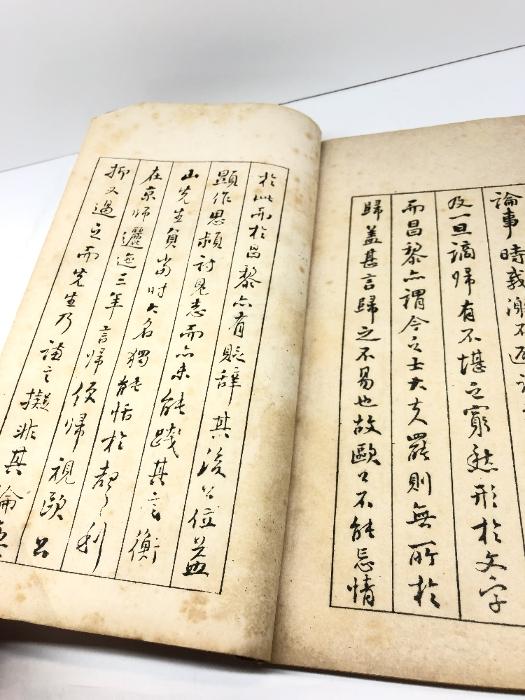 論事時或激不
及一旦謫歸有不堪之窮愁形於文字
而昌黎亦謂今之士大夫罷則無所於
歸盖甚言歸之不易也故歐公不能忘情
於此而於昌黎亦有貶辭其後公位益
顯作思潁詩見志而亦未能踐其言衡
山先生負當時大名獨能恬於聲利
在京師邐迤三年言歸便歸視歐公
抑又過之而先生乃謙言擬非其倫